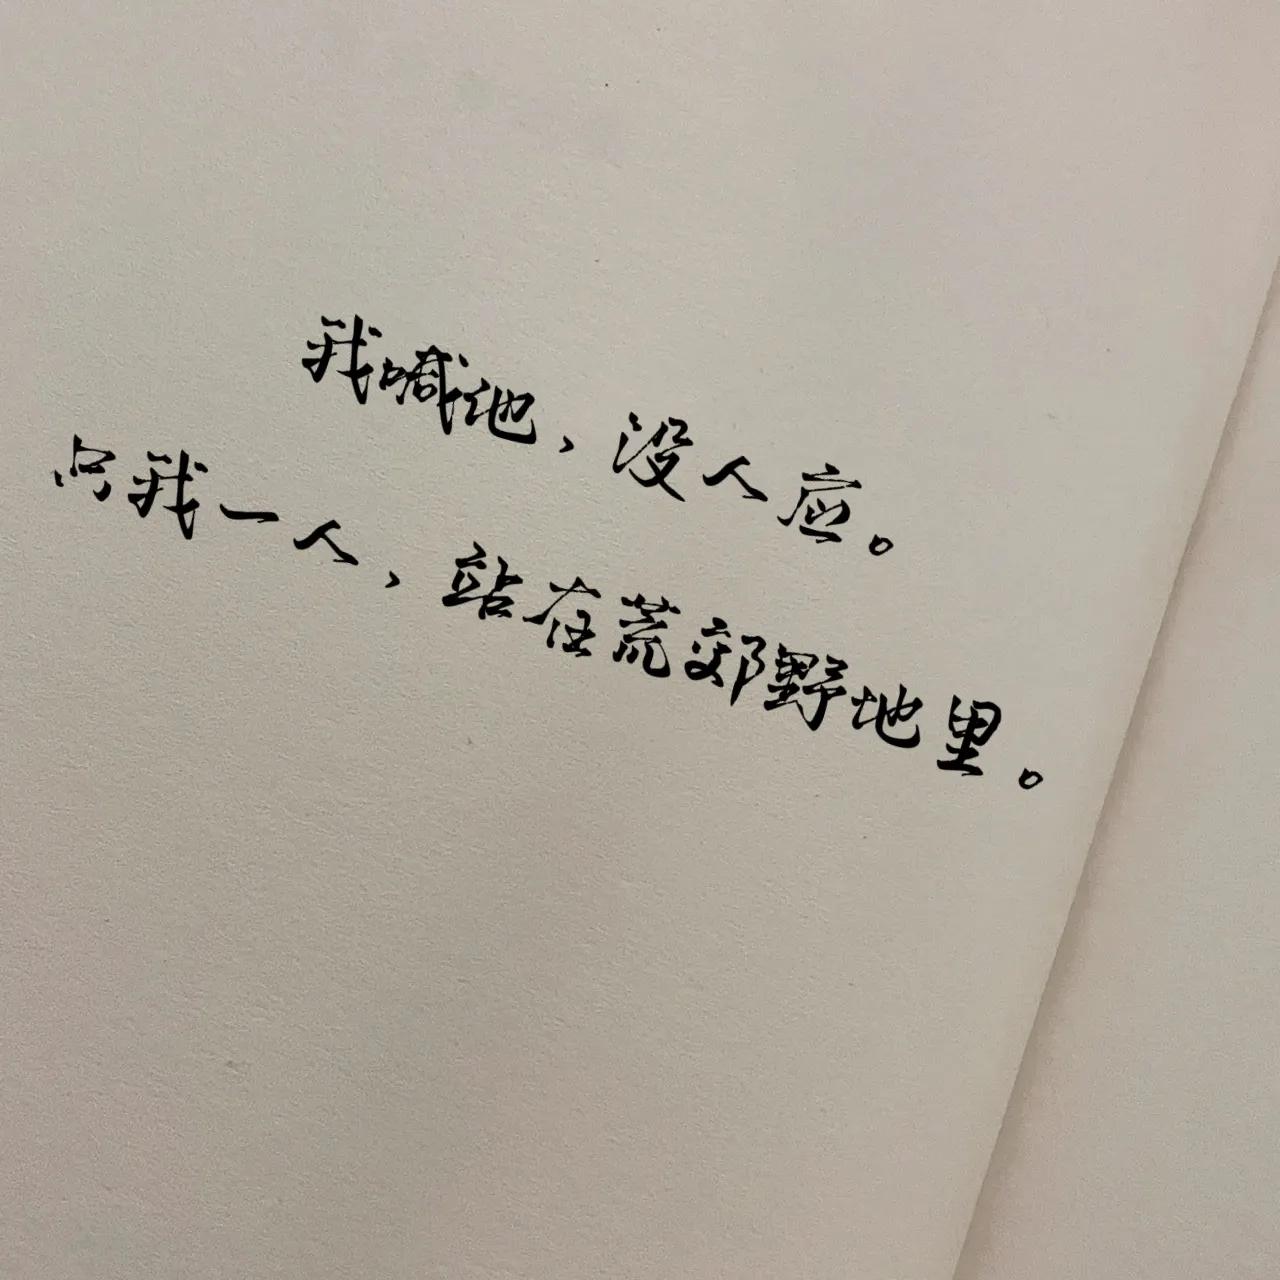 我喊他，没人应。
只我一人，站在荒郊野地里。